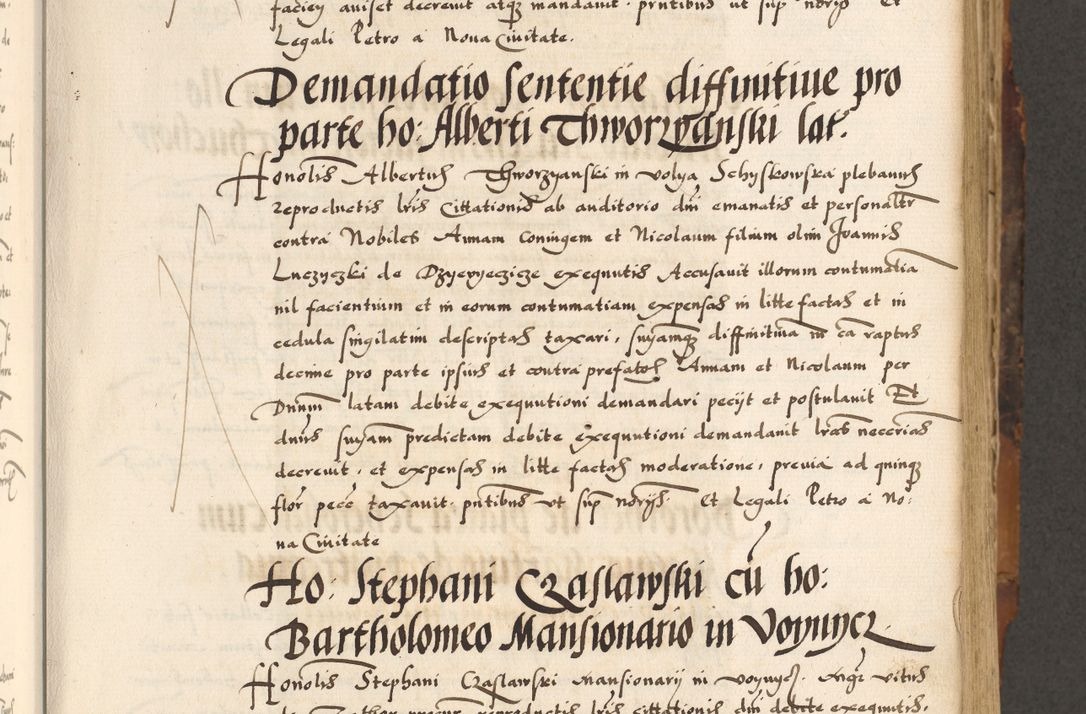 faciey auiset decreuit atq3 mandauit. pntibus ut sup norijs Et
Legali Petro a Noua Ciuitate.
Demandatio sententie diffinitiue pro
parte ho: Alberti Thworzyanski lat.
Honolis Albertus Thworzyanski in volya Schyskowska plebanus
reproductis lris Cittationis ab auditorio dni emanatis et personaltr
contra Nobiles Annam Coniugem et Nicolaum filium olim Joannis
Luczyczki de Dzyeryeczicze exequutis Accusauit illorum contumatia
nil facientium et in eorum contumatiam expensas in litte factas et in
cedula singilatim descriptas taxari, suyamq3 diffinitiua in ca raptus
decime pro parte ipsius et contra prefatos Annam et Nicolaum per
Dnum latam debite exequutioni demandari pecijt et postulauit Et
dnus suyam predictam debite exequutioni demandauit lras necerias
decreuit, et expensas in litte factas moderatione, preuia ad quinq3
flor pece taxauit. pntibus ut sup norijs. Et Legali Petro a No:
ua Ciuitate
Ho: Stephani Czaslawski cu ho:
Bartholomeo Mansionario in Voynycz.
Honolis Stephani Czaslawski mansionarij in voynycz. vitus
reproductis lris cittationis dni debite exequutis,